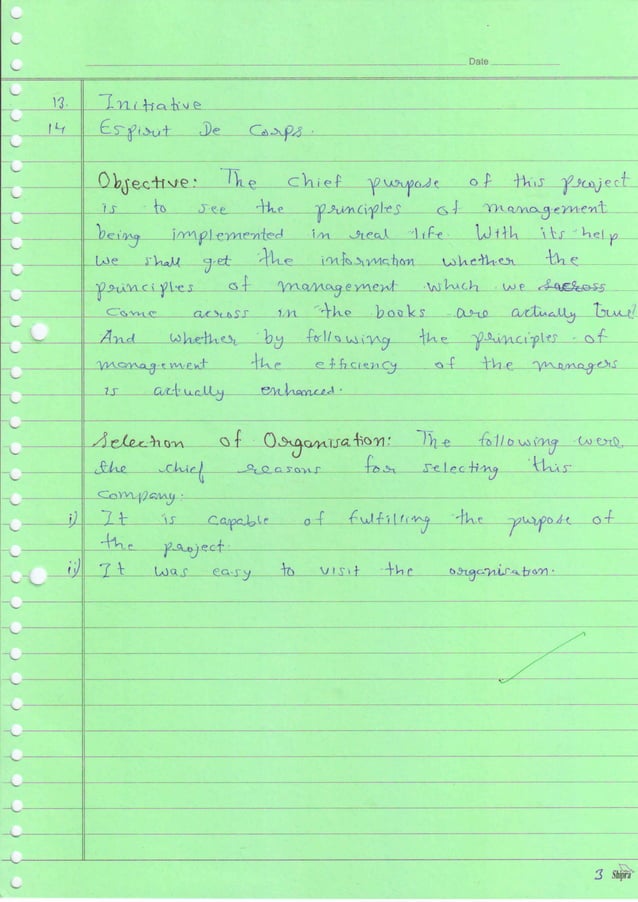 Date
13. Initiative
14 Espirit De Corps.
Objective: The chief purpose of this project
is to see the principles of management
being implemented in real life. With its help
we shall get the information whether the
principles of management which we
come across in the books are actually true!
And whether by following the principles of
management the efficiency of the managers
is actually enhanced.
Selection of Organisation: The following were
the chief reasons for selecting this
company:
i) It is capable of fulfilling the purpose of
the project.
ii) It was easy to visit the organisation.
3 Shipra